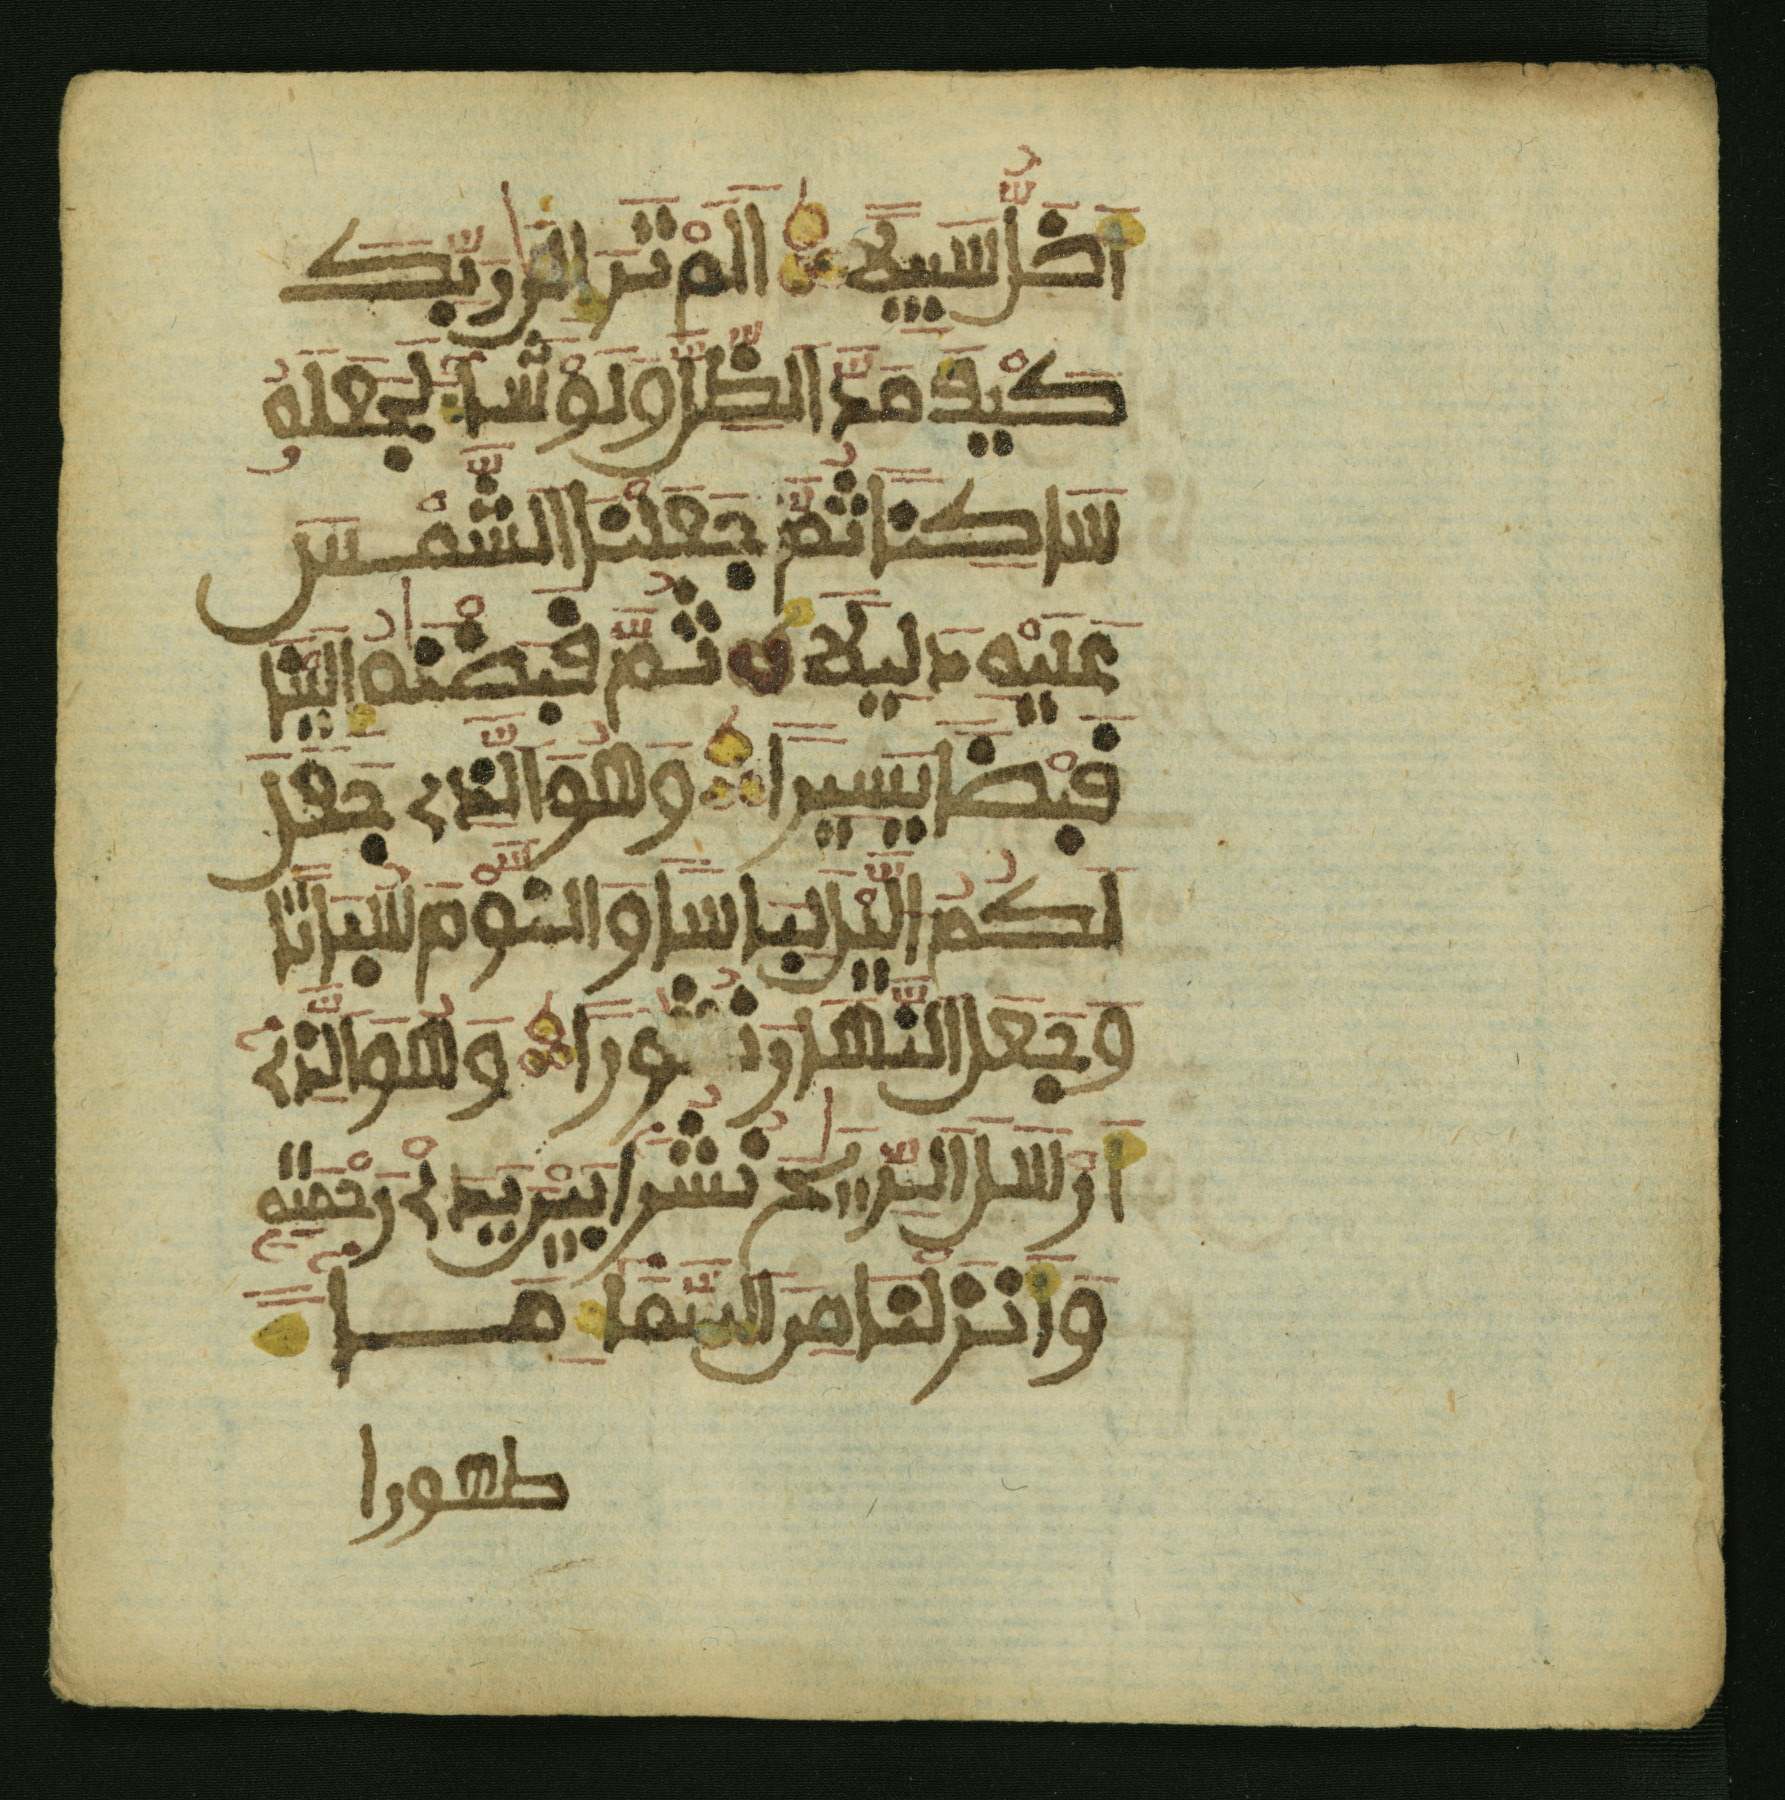 أَضَلُّ سَبِيلًا أَلَمْ تَرَ إِلَىٰ رَبِّكَ
كَيْفَ مَدَّ ٱلظِّلَّ وَلَوْ شَاءَ لَجَعَلَهُ
سَاكِنًا ثُمَّ جَعَلْنَا ٱلشَّمْسَ
عَلَيْهِ دَلِيلًا ثُمَّ قَبَضْنَٰهُ إِلَيْنَا
قَبْضًا يَسِيرًا وَهُوَ ٱلَّذِي جَعَلَ
لَكُمُ ٱلَّيْلَ لِبَاسًا وَٱلنَّوْمَ سُبَاتًا
وَجَعَلَ ٱلنَّهَارَ نُشُورًا وَهُوَ ٱلَّذِي
أَرْسَلَ ٱلرِّيَٰحَ نُشُرًا بَيْنَ يَدَيْ رَحْمَتِهِ
وَأَنزَلْنَا مِنَ ٱلسَّمَاءِ مَاءً
طهورا